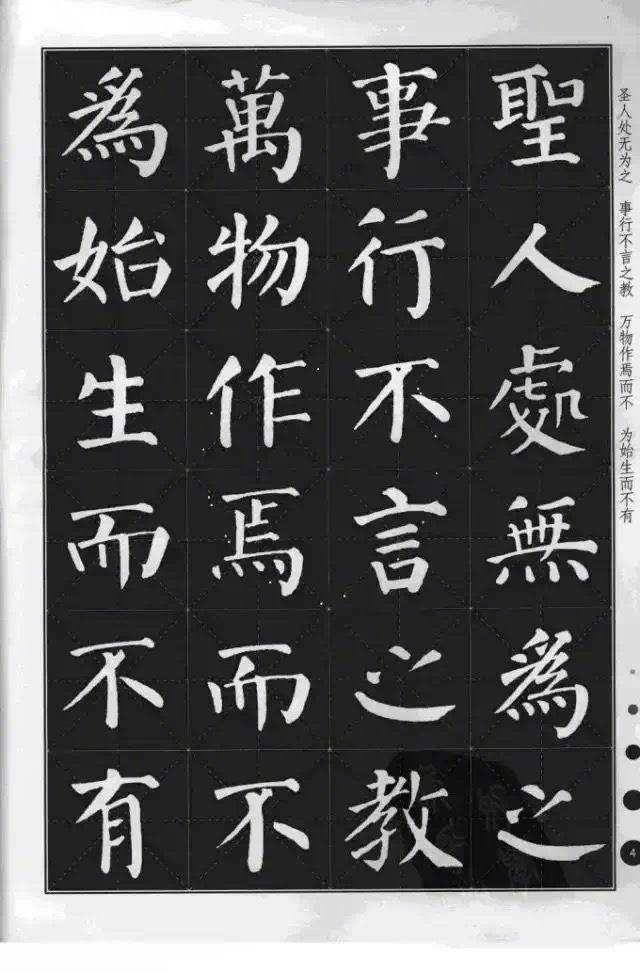 聖人處無為之
事行不言之教
萬物作焉而不
為始生而不有
圣人处无为之 事行不言之教 万物作焉而不 为始生而不有
4